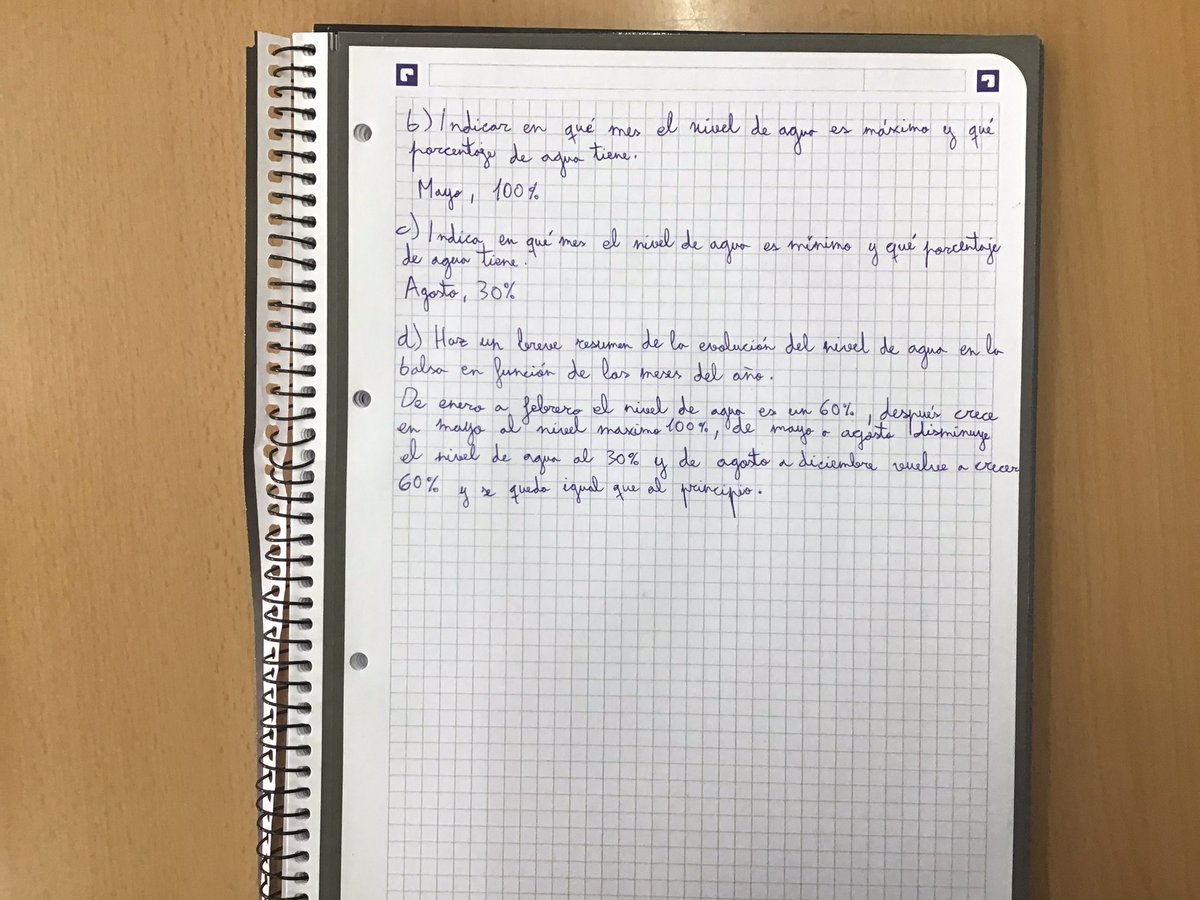 b) Indicar en qué mes el nivel de agua es máximo y qué
porcentaje de agua tiene.
Mayo, 100%
c) Indica, en qué mes el nivel de agua es mínimo y qué porcentaje
de agua tiene.
Agosto, 30%
d) Haz un breve resumen de la evolución del nivel de agua en la
balsa en función de los meses del año.
De enero a febrero el nivel de agua es un 60%, después crece
en mayo al nivel maximo 100%, de mayo a agosto disminuye
el nivel de agua al 30% y de agosto a diciembre vuelve a crecer
60% y se queda igual que al principio.